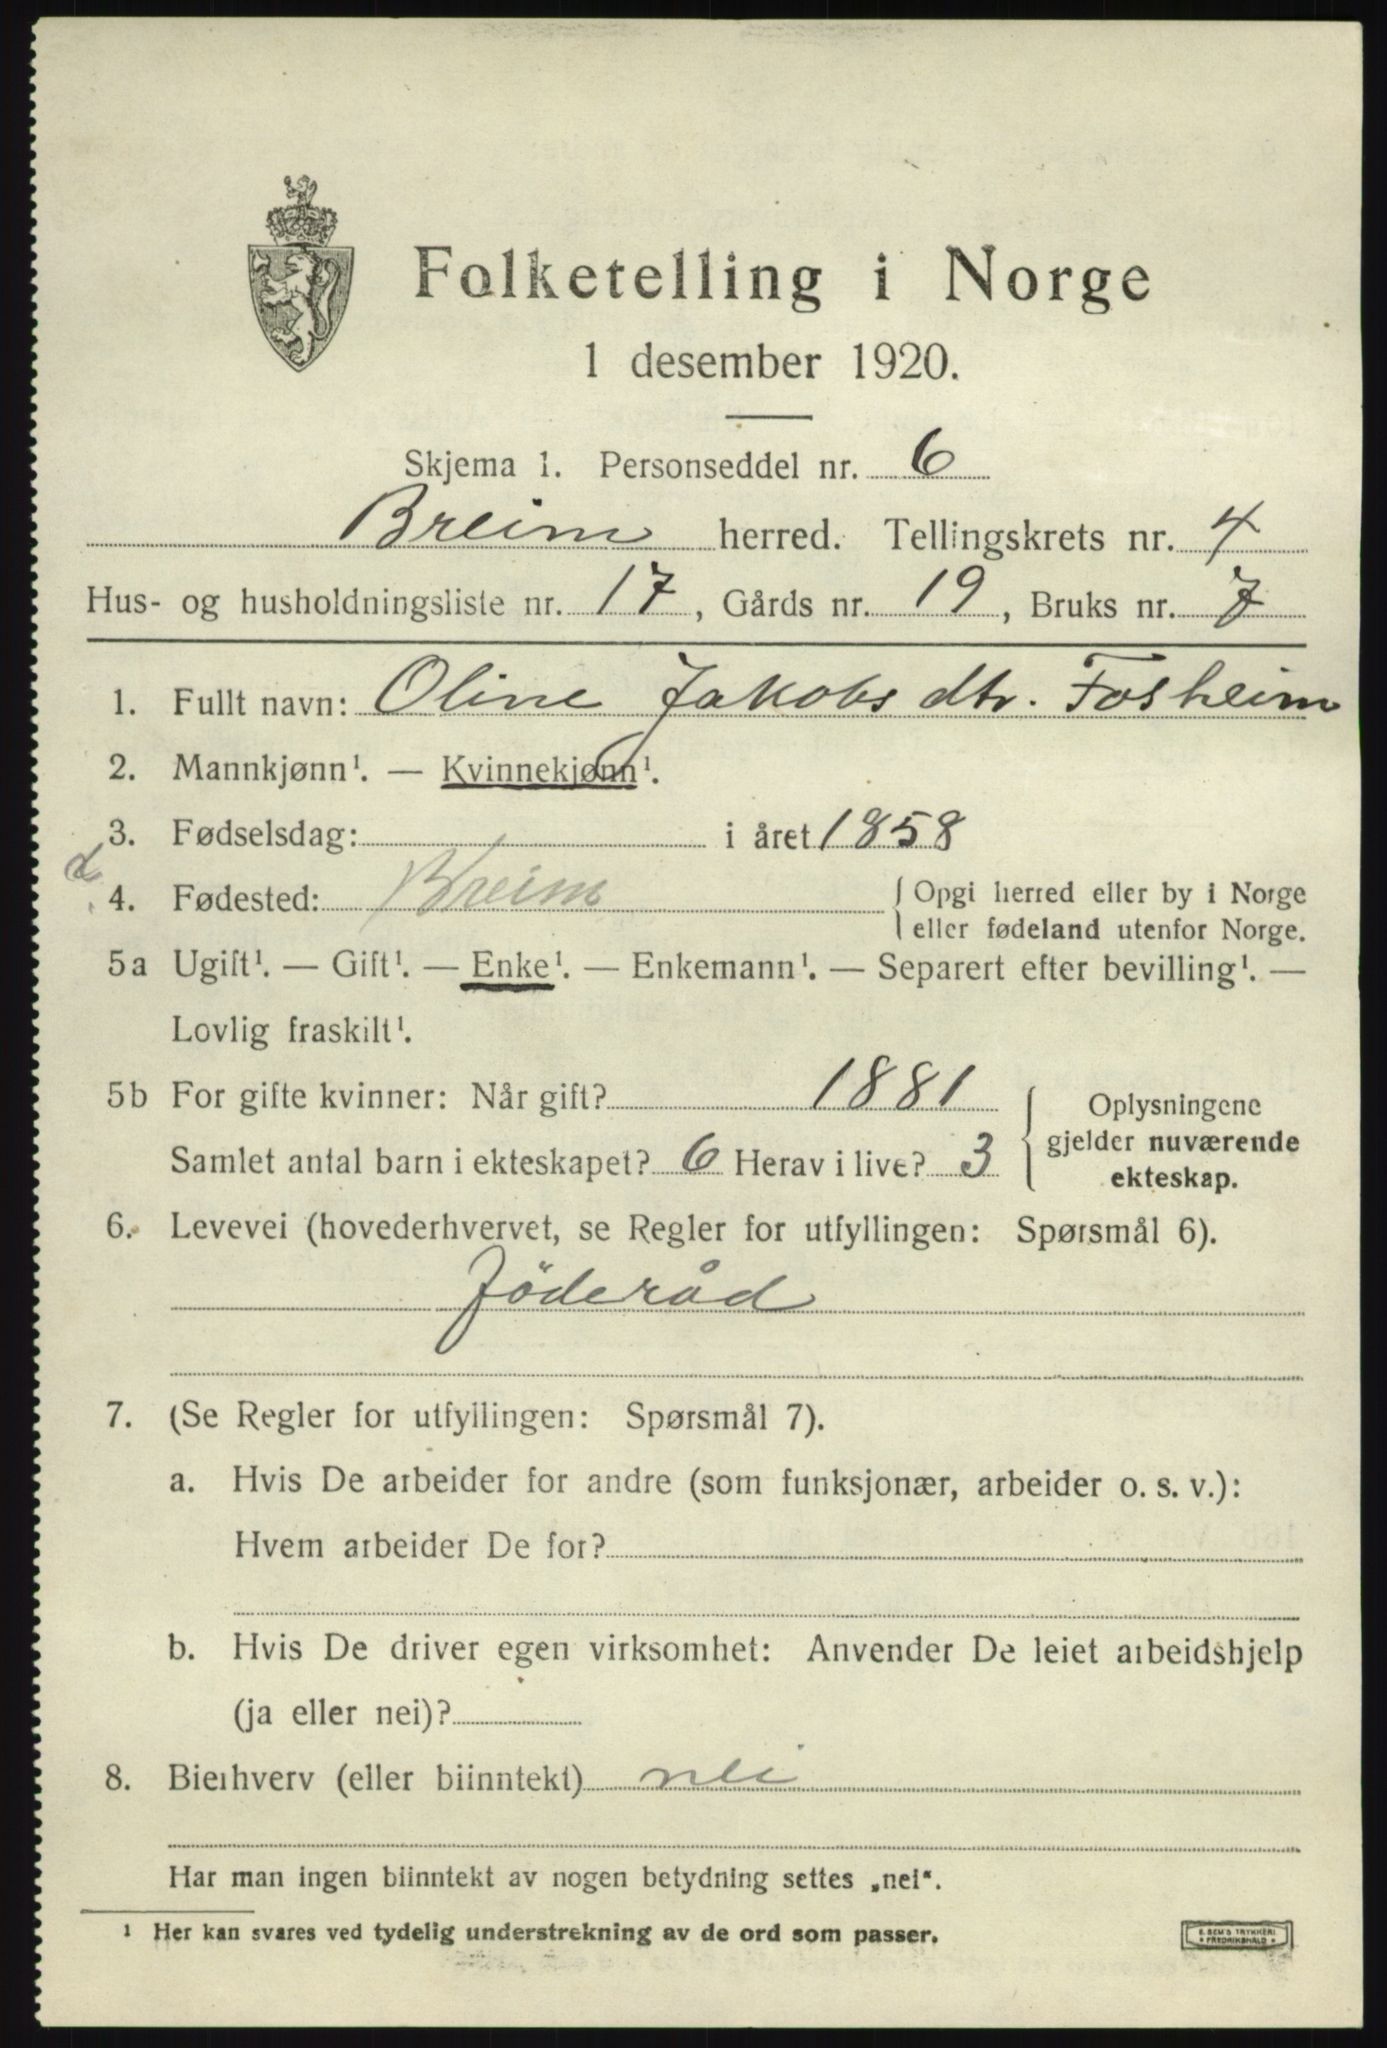 Folketelling i Norge
1 desember 1920.
Skjema 1. Personseddel nr. 6
Breim herred. Tellingskrets nr. 4
Hus- og husholdningsliste nr. 17, Gårds nr. 19, Bruks nr. 7
1. Fullt navn: Oline Jakobs dtr. Fosheim
2. Mannkjønn¹. — Kvinnekjønn¹.
3. Fødselsdag: i året 1858
4. Fødested: Breim { Opgi herred eller by i Norge
eller fødeland utenfor Norge.
5a Ugift¹. — Gift¹. — Enke¹. — Enkemann¹. — Separert efter bevilling¹. —
Lovlig fraskilt¹.
5b For gifte kvinner: Når gift? 1881
Samlet antal barn i ekteskapet? 6 Herav i live? 3
{ Oplysningene
gjelder nuværende
ekteskap.
6. Levevei (hovederhvervet, se Regler for utfyllingen: Spørsmål 6).
Föderåd
7. (Se Regler for utfyllingen: Spørsmål 7).
a. Hvis De arbeider for andre (som funksjonær, arbeider o. s. v.):
Hvem arbeider De for?
b. Hvis De driver egen virksomhet: Anvender De leiet arbeidshjelp
(ja eller nei)?
8. Bierhverv (eller biinntekt) nei
Har man ingen biinntekt av nogen betydning settes „nei“.
¹ Her kan svares ved tydelig understrekning av de ord som passer.
E. SEM'S TRYKKERI
FREDRIKSHALD